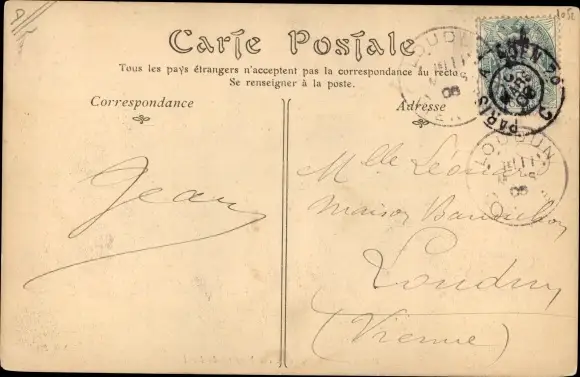 1052
Carte Postale
Tous les pays étrangers n'acceptent pas la correspondance au recto
Se renseigner à la poste.
Correspondance
Adresse
LOUDUN
PARIS A
LOUDUN
Jean
Mlle Léonie
Maison
Loudun
(Vienne)